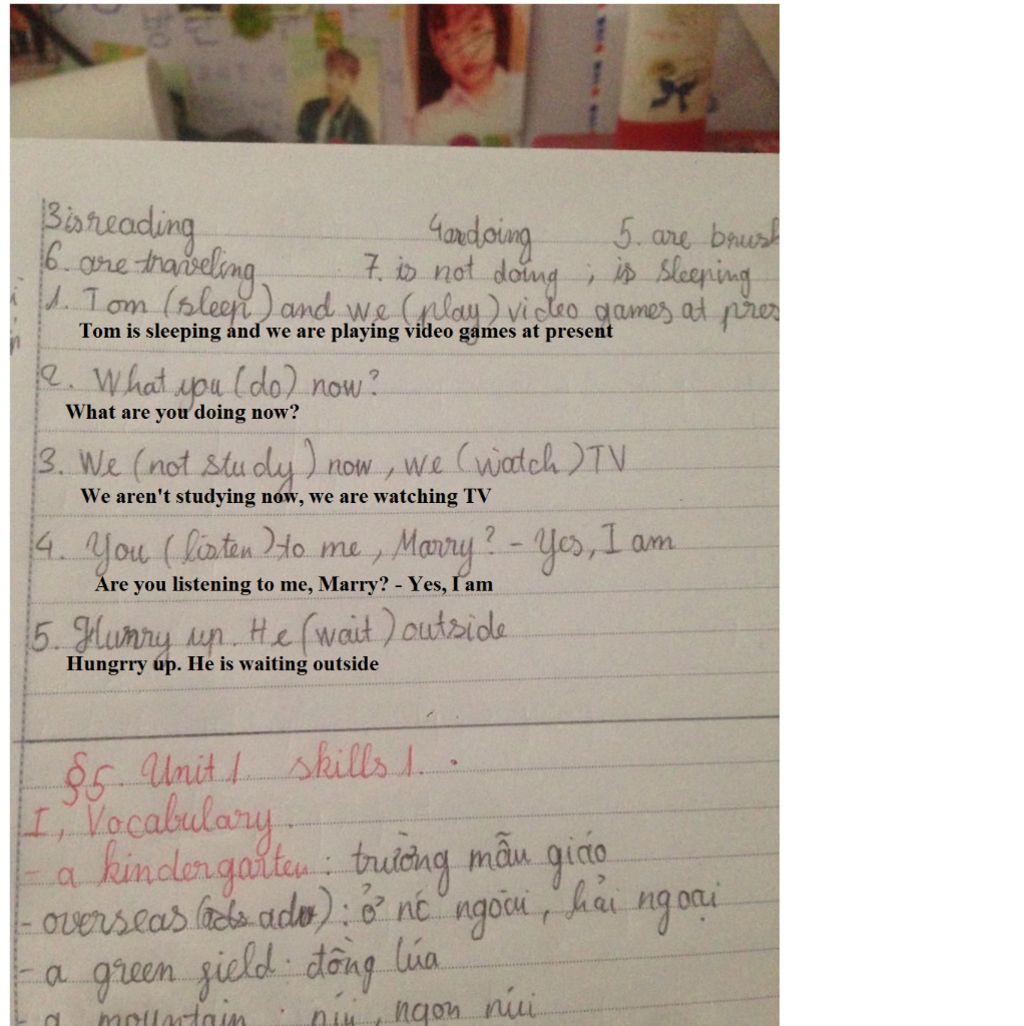 3 is reading 4 are doing 5. are brush
6. are traveling 7. is not doing ; is sleeping
1. Tom (sleep) and we (play) video games at pres
Tom is sleeping and we are playing video games at present
2. What you (do) now?
What are you doing now?
3. We (not study) now, we (watch) TV
We aren't studying now, we are watching TV
4. You (listen) to me, Marry? - Yes, I am
Are you listening to me, Marry? - Yes, I am
5. Hurry up. He (wait) outside
Hungrry up. He is waiting outside
§5. Unit 1. skills 1.
I, Vocabulary.
- a kindergarten: trường mẫu giáo
- overseas (adv): ở nc ngoài, hải ngoại
- a green field: đồng lúa
- a mountain: núi, ngọn núi